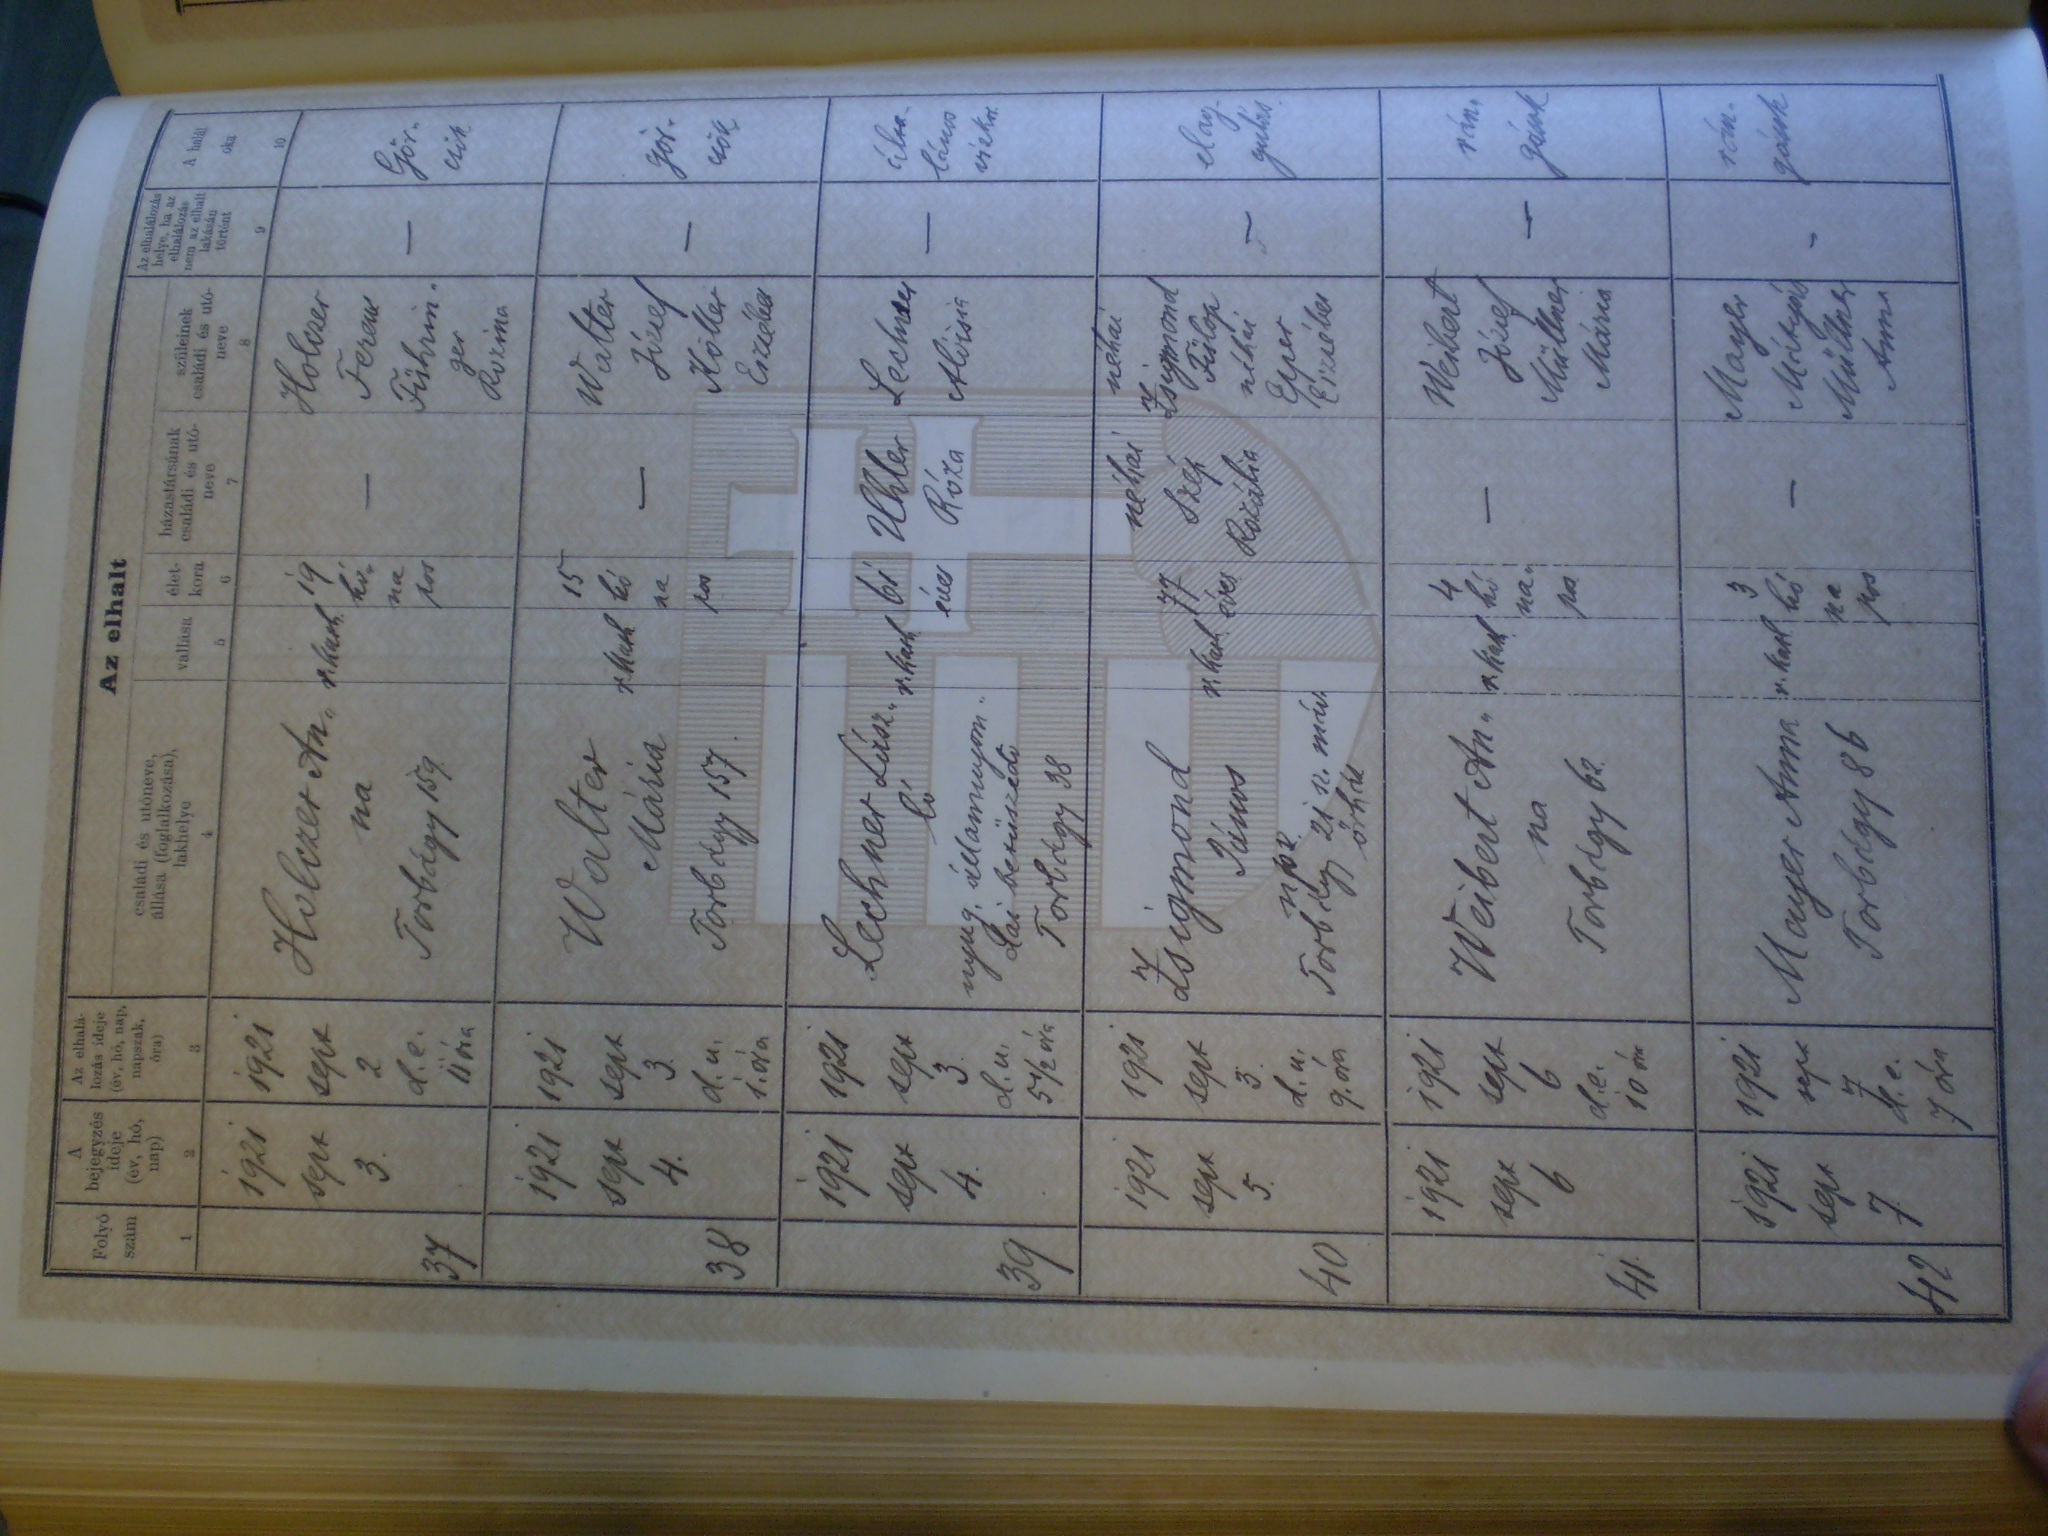 Az elhalt
Folyó
szám
A
bejegyzés
ideje
(év, hó,
nap)
Az elhalá-
lozás ideje
(év, hó, nap,
napszak,
óra)
családi és utóneve,
állása (foglalkozása),
lakhelye
vallása
élet-
kora
házastársának
családi és utó-
neve
szüleinek
családi és utó-
neve
Az elhalálozás
helye, ha az
elhalálozás
nem az elhalt
lakásán
történt
A halál
oka
1
2
3
4
5
6
7
8
9
10
37
1921
sept
3.
1921
sept
2
d.e.
11 óra
Holczer An„
na
Torbágy 159.
r.kath.
19
hó„
na
pos
—
Holczer
Ferenc
Führin-
ger
Rozina
—
Gör-
csök
38
1921
sept
4.
1921
sept
3.
d.u.
1. óra
Walter
Mária
Torbágy 157.
r.kath
15
hó
na
pos
—
Walter
József
Koller
Erzsébet
—
gör-
csök
39
1921
sept
4.
1921
sept
3.
d.u.
5 1/2 óra
Lechner Lász„
ló
nyug. államnyom-
dai
Torbágy 38
r.kath
61
éves
Uhler
Róza
Lechner
Aloisia
—
álta-
lános
40
1921
sept
5.
1921
sept
3.
d.u.
9. óra
Zsigmond
János
Torbágy 21 sz. máv.
őrház
r.kath
77
éves
néhai
Szép
Rozália
néhai
Zsigmond
Fülöp
néhai
Eper
Erzsébet
—
elag-
gulás.
41.
1921
sept
6
1921
sept
6
d.e.
10 óra
Weibert An„
na
Torbágy 62.
r.kath
4
hó
na„
pos
—
Weibert
József
Müllner
Mária
—
rán„
gások
42
1921
sept
7.
1921
sept
7
d.e.
7 óra
Mayer Anna
Torbágy 86
r.kath
3
hó
na
pos
—
Mayer
Mátyás
Müllner
Anna
-
rán-
gások